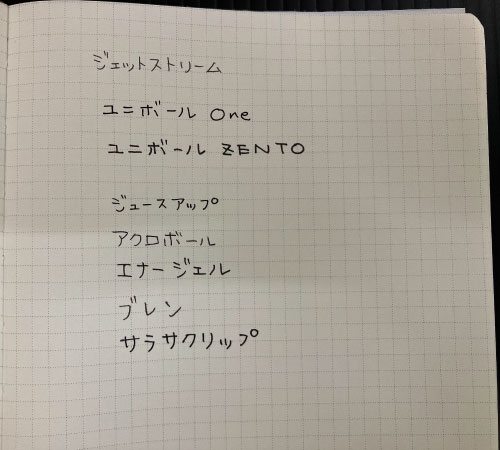 ジェットストリーム
ユニボール One
ユニボール ZENTO
ジュースアップ
アクロボール
エナージェル
ブレン
サラサクリップ